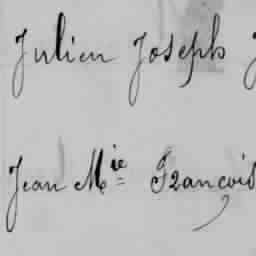 Julien Joseph
Jean Mie François